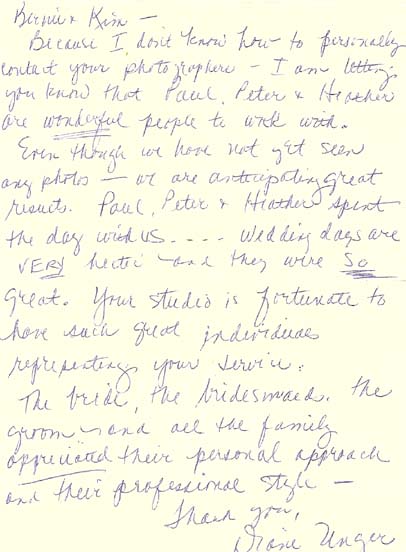 Bernie & Kim —
Because I don't know how to personally
contact your photographers – I am letting
you know that Paul, Peter & Heather
are wonderful people to work with.
Even though we have not yet seen
any photos — we are anticipating great
results. Paul, Peter & Heather spent
the day with us.... Wedding days are
VERY hectic – and they were So
great. Your studio is fortunate to
have such great individuals
representing your service.
The bride, the bridesmaid, the
groom – and all the family
appreciated their personal approach
and their professional style —
Thank you,
Diane Unger